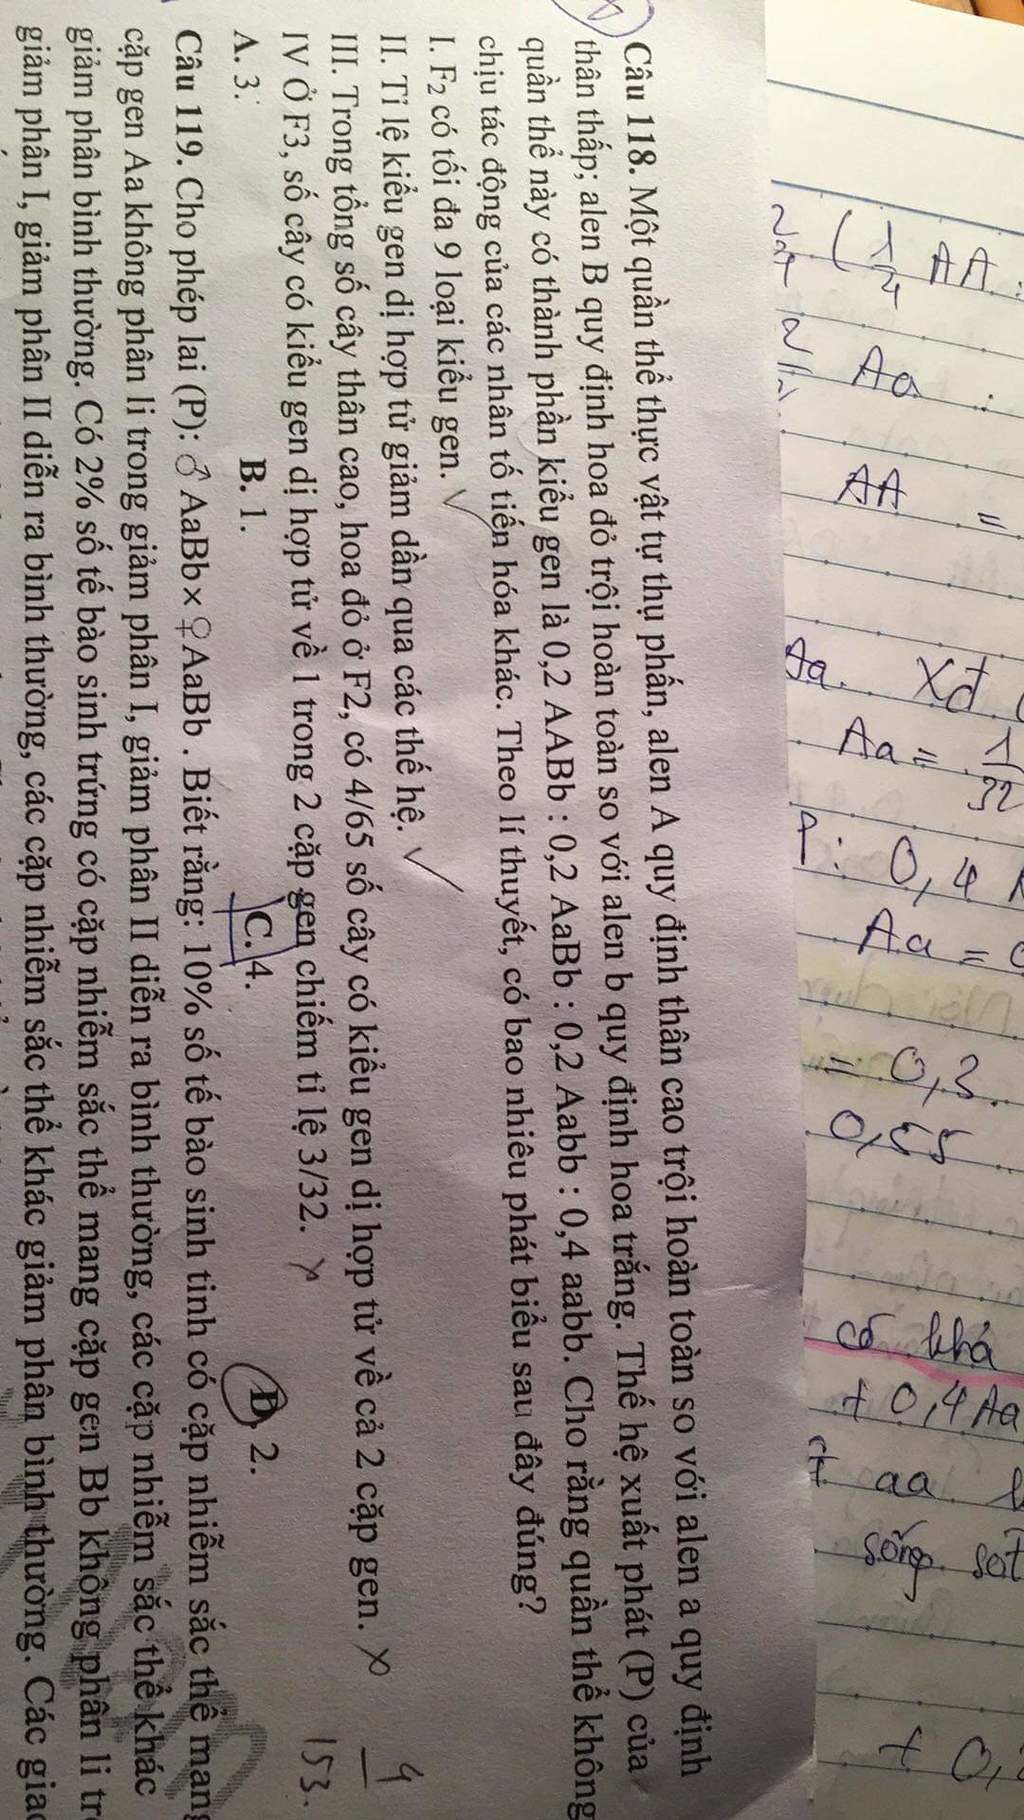 Câu 118. Một quần thể thực vật tự thụ phấn, alen A quy định thân cao trội hoàn toàn so với alen a quy định
thân thấp; alen B quy định hoa đỏ trội hoàn toàn so với alen b quy định hoa trắng. Thế hệ xuất phát (P) của
quần thể này có thành phần kiểu gen là 0,2 AABb : 0,2 AaBb : 0,2 Aabb : 0,4 aabb. Cho rằng quần thể không
chịu tác động của các nhân tố tiến hóa khác. Theo lí thuyết, có bao nhiêu phát biểu sau đây đúng?
I. F2 có tối đa 9 loại kiểu gen. ✓
II. Tỉ lệ kiểu gen dị hợp tử giảm dần qua các thế hệ. ✓
III. Trong tổng số cây thân cao, hoa đỏ ở F2, có 4/65 số cây có kiểu gen dị hợp tử về cả 2 cặp gen. ×
4/153.
IV Ở F3, số cây có kiểu gen dị hợp tử về 1 trong 2 cặp gen chiếm tỉ lệ 3/32. ×
A. 3. B. 1. C. 4. D. 2.
Câu 119. Cho phép lai (P): ♂ AaBb × ♀ AaBb . Biết rằng: 10% số tế bào sinh tinh có cặp nhiễm sắc thể mang
cặp gen Aa không phân li trong giảm phân I, giảm phân II diễn ra bình thường, các cặp nhiễm sắc thể khác
giảm phân bình thường. Có 2% số tế bào sinh trứng có cặp nhiễm sắc thể mang cặp gen Bb không phân li tr
giảm phân I, giảm phân II diễn ra bình thường, các cặp nhiễm sắc thể khác giảm phân bình thường. Các gia
(1/4 AA :
Aa :
AA =
Aa. Xđ
Aa = 1/32
P: 0,4
Aa =
= 0,3.
0,55
có khả
+ 0,4 Aa
+ aa
sống sót
+ 0,